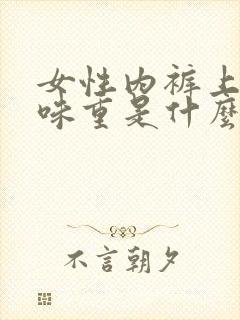 女性内裤上
味重是什麼
不言朝夕